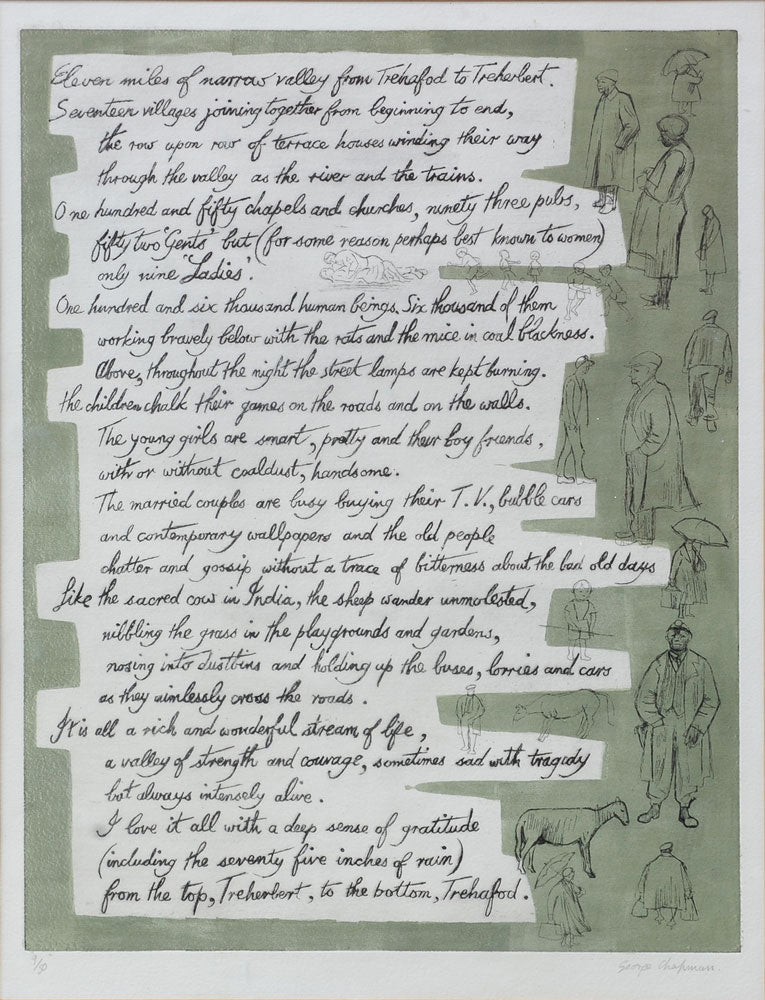 Eleven miles of narrow valley from Trehafod to Treherbert.
Seventeen villages joining together from beginning to end,
the row upon row of terrace houses winding their way
through the valley as the river and the trains.
One hundred and fifty chapels and churches, ninety three pubs,
fifty two 'Gents' but (for some reason perhaps best known to women)
only nine 'Ladies'.
One hundred and six thousand human beings. Six thousand of them
working bravely below with the rats and the mice in coal blackness.
Above, throughout the night the street lamps are kept burning.
the children chalk their games on the roads and on the walls.
The young girls are smart, pretty and their boy friends,
with or without coaldust, handsome.
The married couples are busy buying their T.V., bubble cars
and contemporary wallpapers and the old people
chatter and gossip without a trace of bitterness about the bad old days
Like the sacred cow in India, the sheep wander unmolested,
nibbling the grass in the playgrounds and gardens,
nosing into dustbins and holding up the buses, lorries and cars
as they aimlessly cross the roads.
It is all a rich and wonderful stream of life,
a valley of strength and courage, sometimes sad with tragedy
but always intensely alive.
I love it all with a deep sense of gratitude
(including the seventy five inches of rain)
from the top, Treherbert, to the bottom, Trehafod.
George Chapman.